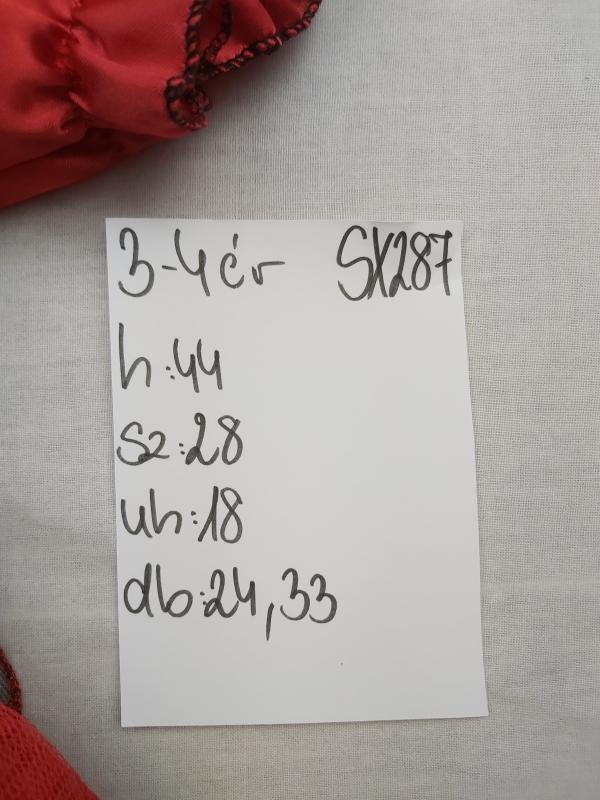 3-4 év SX287
h:44
sz:28
uh:18
db:24,33